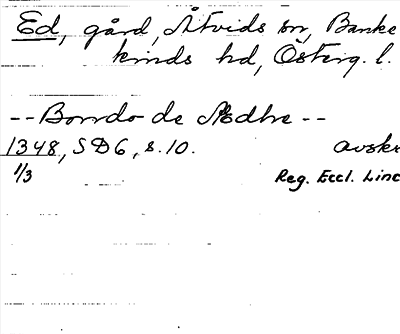 Ed, gård, Åtvids sn, Banke
kinds hd, Österg. l.
-- Bondo de Ædhe --
1348, SD6, s. 10. avskr
1/3 Reg. Eccl. Linc